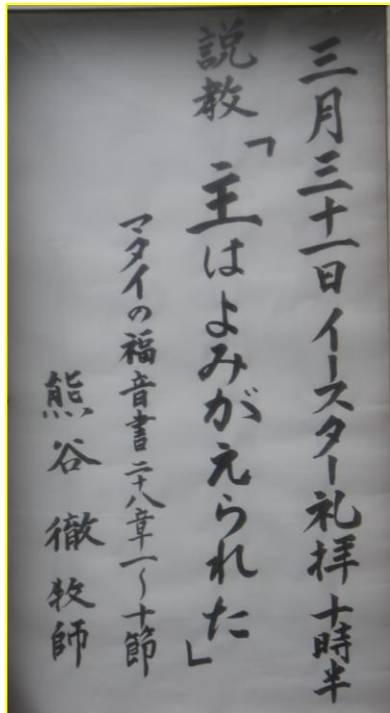 三月三十一日イースター礼拝十時半
説教「主はよみがえられた」
マタイの福音書二十八章一〜十節
熊谷徹牧師